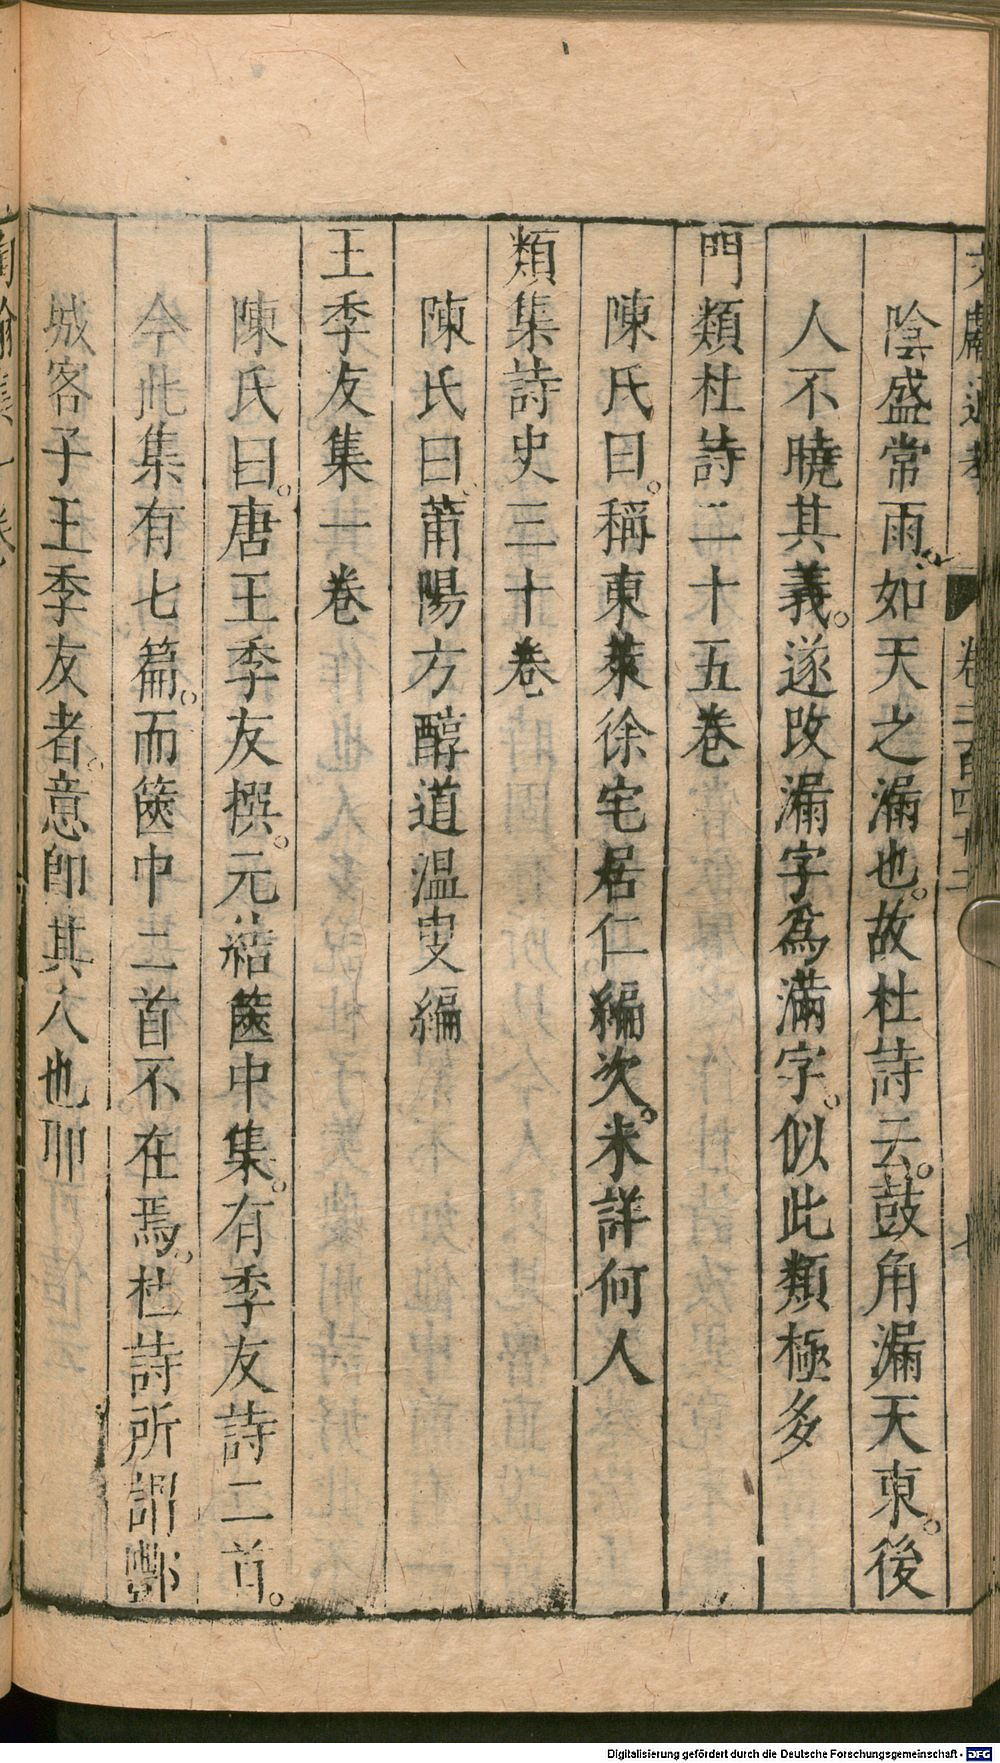 文獻通考 卷二百四十二
陰盛常雨如天之漏也故杜詩云鼓角漏天東後
人不曉其義遂改漏字為滿字似此類極多
門類杜詩二十五卷
陳氏曰稱東萊徐宅居仁編次未詳何人
類集詩史三十卷
陳氏曰莆陽方醇道溫叟編
王季友集一卷
陳氏曰唐王季友撰元結篋中集有季友詩二首
今此集有七篇而篋中二首不在焉杜詩所謂酆
城客子王季友者意即其人也耶
Digitalisierung gefördert durch die Deutsche Forschungsgemeinschaft - DFG